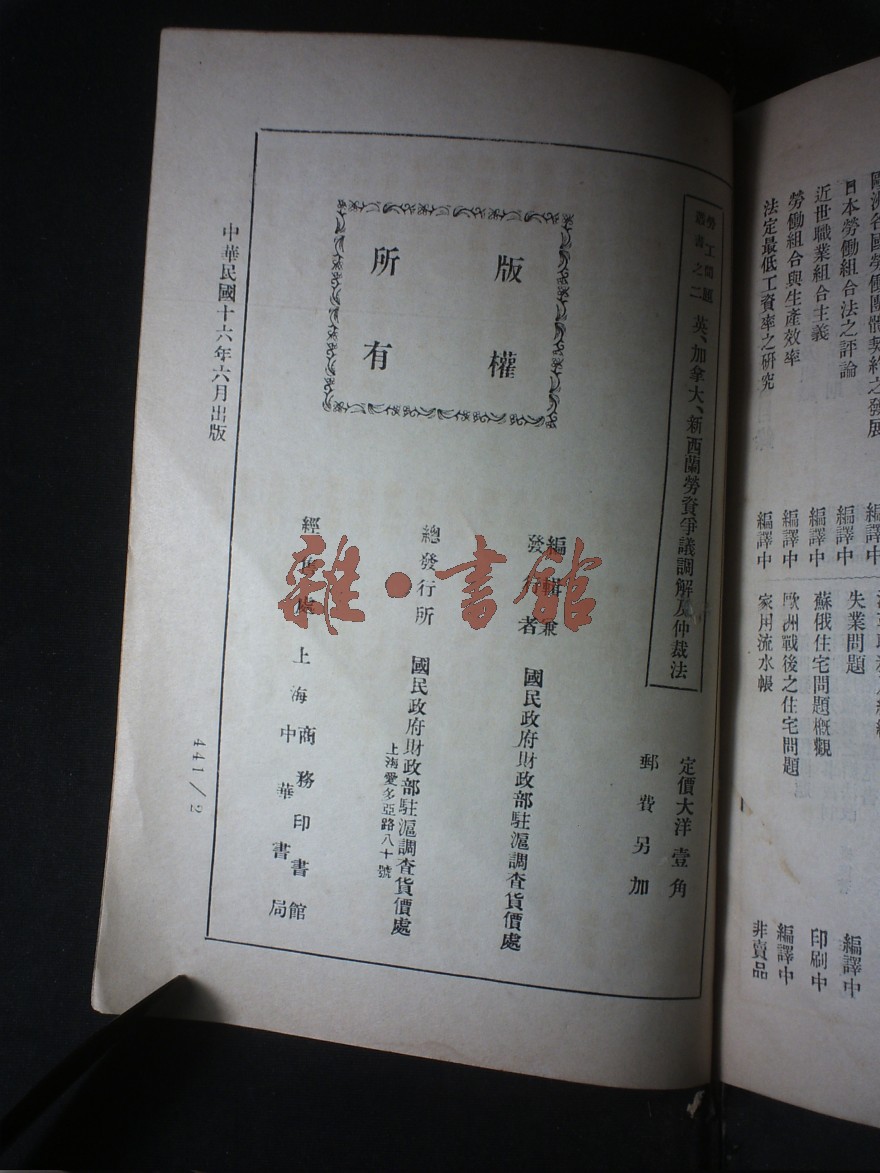 歐洲各國勞働團體契約之發展 編譯中
日本勞働組合法之評論 編譯中
近世職業組合主義 編譯中
勞働組合與生產效率 編譯中
法定最低工資率之研究 編譯中
失業問題 編譯中
蘇俄住宅問題概觀 印刷中
歐洲戰後之住宅問題 編譯中
家用流水帳 非賣品
勞工問題
叢書之二
英、加拿大、新西蘭勞資爭議調解及仲裁法
定價大洋壹角
郵費另加
版權
所有
編輯兼
發行者
國民政府財政部駐滬調查貨價處
總發行所
國民政府財政部駐滬調查貨價處
上海愛多亞路八十號
經售處
上海
商務印書館
中華書局
中華民國十六年六月出版
441/2
雜·書館